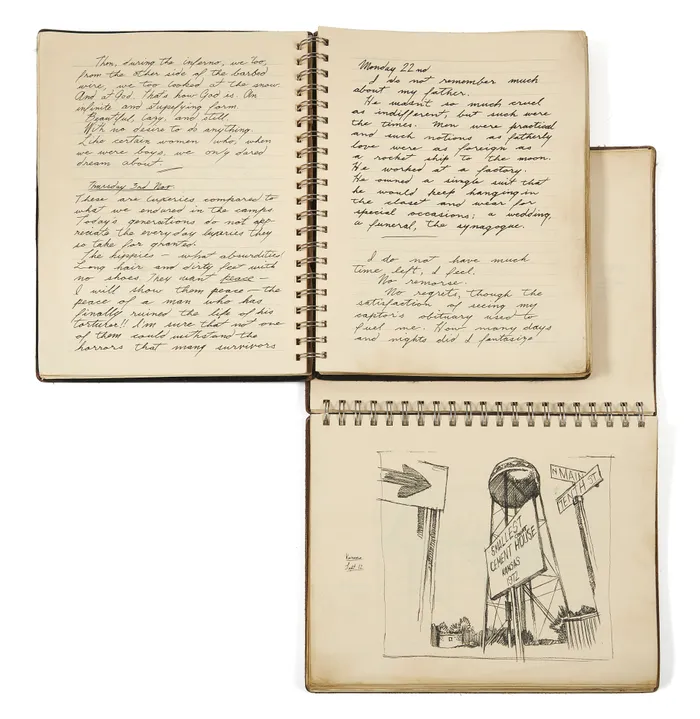 Then, during the inferno, we too,
from the other side of the barbed
wire, we too looked at the snow.
And at God. That's how God is. An
infinite and stupefying form.
Beautiful, lazy, and still.
With no desire to do anything.
Like certain women who, when
we were boys, we only dared
dream about
Thursday 3rd Nov
These are luxuries compared to
what we endured in the camps
Today's generations do not app-
reciate the everyday luxuries they
so take for granted.
The hippies – what absurdities
Long hair and dirty feet with
no shoes. They want peace –
I will show them peace – the
peace of a man who has
finally ruined the life of his
torturer!! I'm sure that not one
of them could withstand the
horrors that many survivors
Monday 22nd
I do not remember much
about my father.
He wasn't so much cruel
as indifferent, but such were
the times. Men were practical
and such notions as fatherly
love were as foreign as
a rocket ship to the moon.
He worked at a factory.
He owned a single suit that
he would keep hanging in
the closet and wear for
special occasions; a wedding,
a funeral, the synagogue.
I do not have much
time left, I feel.
No remorse.
No regrets, though the
satisfaction of seeing my
captor's obituary used to
fuel me. How many days
and nights did I fantasize
N MAIN
TENTH ST
SMALLEST
CEMENT HOUSE
KANSAS
1972
Kansas
Sept. 12